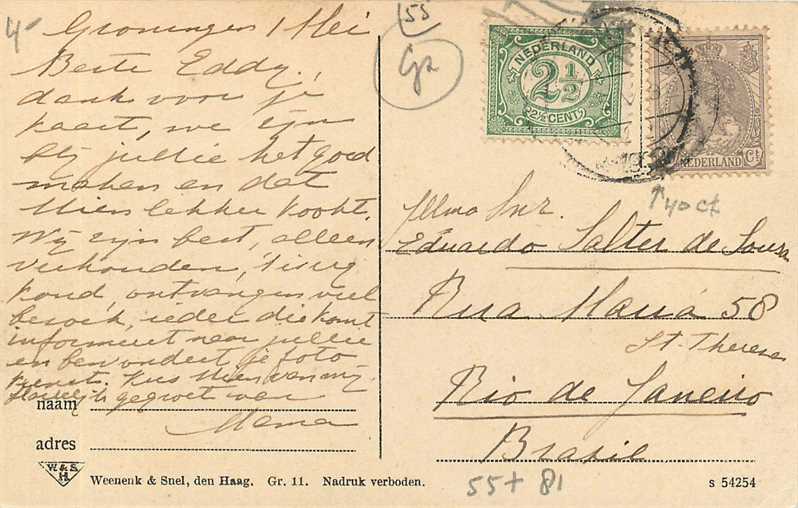 4-
Groningen 1 Mei
Beste Eddy!
dank voor je
kaart, we zijn
blij jullie het goed
maken en dat
Mien lekker kookt.
Wij zijn best, alleen
verkouden, 't is erg
koud, ontvangen veel
bezoek, ieder die komt
informeert naar jullie
en bewondert je foto
kunst. Kus Mien van mij.
Hartelijk gegroet van
Mama
naam
adres
W. & S.
H
Weenenk & Snel, den Haag. Gr. 11. Nadruk verboden.
55
NEDERLAND
2½
2½ CENT
NEDERLAND
Ct
40 ct
Illmo Snr.
Eduardo Salter de Souza
Rua Mauá 58
St. Thereza
Rio de Janeiro
Brasil
55+ 81
S 54254